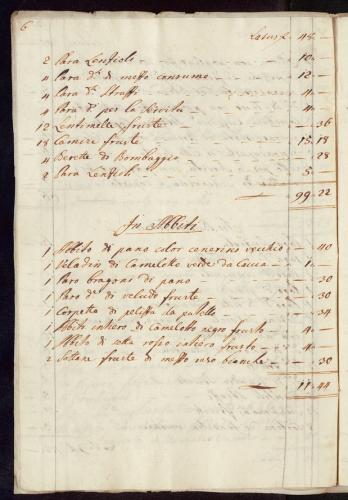 6
48 -
2 Para Lenzioli - 10 -
4 Para d.i di mezzo consumo - 12 -
4 Para d.i Straffi - 4 -
4 Para d.i per la Servitù - 4 -
12 Lentimelle fruste - 36
18 Camise fruste - 15 - 18
4 Berete di Bombaggio - 28
2 Para Lenzioli - 5 -
99 - 22
In Abbiti
1 Abbito di pano color cenerino vecchio - 40
1 Veladon di Camelotto verde da Caccia - 1 -
1 Paro bragoni di pano - 30
1 Paro d.i di veludo fruste - 30
1 Corpetto di pelizza da - 34
1 Abiti intiero di Camelotto negro frusto - 4 -
1 Abbito di setta rosso intiero frusto - 4 -
2 Sottane fruste di mezzo raso bianche - 30
11 - 44